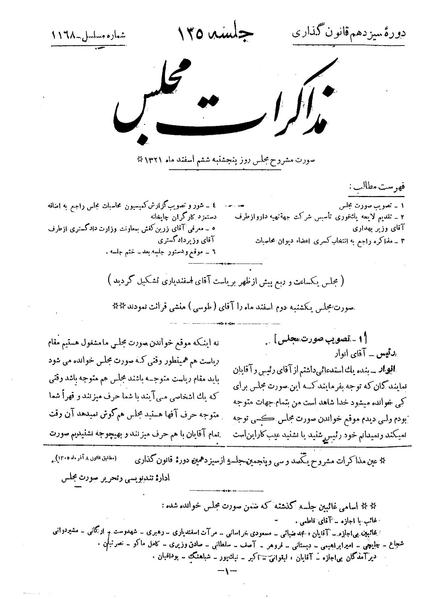 دورهٔ سیزدهم قانون گذاری
جلسه ۱۳۵
شماره مسلسل - ۱۱۶۸
مذاکرات مجلس
صورت مشروح مجلس روز پنجشنبه ششم اسفند ماه ۱۳۲۱ *
فهرست مطالب:
۱ - تصویب صورت مجلس
۲ - تقدیم لایحه یکفوری تأسیس شرکت جهة تهیه دارو از طرف
آقای وزیر بهداری
۳ - مذاکره راجع به انتخاب کسری اعضاء دیوان محاسبات
۴ - شور و تصویب گزارش کمیسیون محاسبات مجلس راجع به اضافه
دستمزد کارگران چاپخانه
۵ - معرفی آقای زرین کفش بمعاونت وزارت دادگستری از طرف
آقای وزیر دادگستری
۶ - موقع و دستور جلسه بعد - ختم جلسه
(مجلس یکساعت و ربع پیش از ظهر بریاست آقای اسفندیاری تشکیل گردید)
صورت مجلس یکشنبه دوم اسفند ماه را آقای (طوسی) منشی قرائت نمودند *
[۱ - تصویب صورت مجلس]
رئیس - آقای انوار
انوار - بنده یک استدعائی داشتم از آقای رئیس و آقایان
نمایندگان که توجه بفرمایند که این صورت مجلس برای
کی خوانده میشود خدا شاهد است من بتمام جهات متوجه
بودم ولی دیدم موقع خواندن صورت مجلس کسی توجه
نمیکند و نمیدانم خود رئیس شنید یا نشنید عیب کار این است
نه اینکه موقع خواندن صورت مجلس ما مشغول هستیم مقام
ریاست هم همینطور وقتی که صورت مجلس خوانده می شود
باید مقام ریاست متوجه باشند مجلس هم متوجه باشد وقتی
که یک اشخاصی می آیند با شما حرف میزنند و قهراً شما
متوجه حرف آقا هستید مجلس هم گوش نمیدهد آن وقت
تمام آقایان با هم حرف میزنند و بهیچوجه نشنیدیم
* عین مذاکرات مشروح یکصد و سی و پنجمین جلسه از سیزدهمین دورهٔ قانون گذاری
(مطابق قانون ۸ آذر ماه ۱۳۰۵)
ادارهٔ تندنویسی و تحریر صورت مجلس
* اسامی غائبین جلسه گذشته که ضمن صورت مجلس خوانده شده:
غائب با اجازه - آقای فاطمی
غائبین بی اجازه - آقایان: مجد ضیائی - مسعودی خراسانی - مرآت اسفندیاری - رهبری - شهدوست - اوگانی - مشیردوانی
شجاع - چایچی - امیرابراهیمی - دبستانی - فروهر - آصف - سلطانی - صادق وزیری - کامل ماکو - نصرتیان
دیرآمدگان بی اجازه - آقایان: لیقوانی - اکبر - نیک پور - شباهنگ - بوداغیان
-۱-